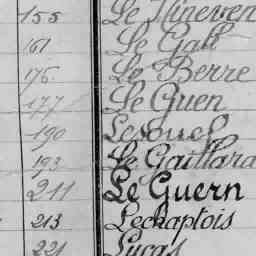 155 Le Minéven
161 Le Gall
176 Le Berre
177 Le Guen
190
193 Le Gaillard
211 Le Guern
213 Lechaptois
221 Lucas